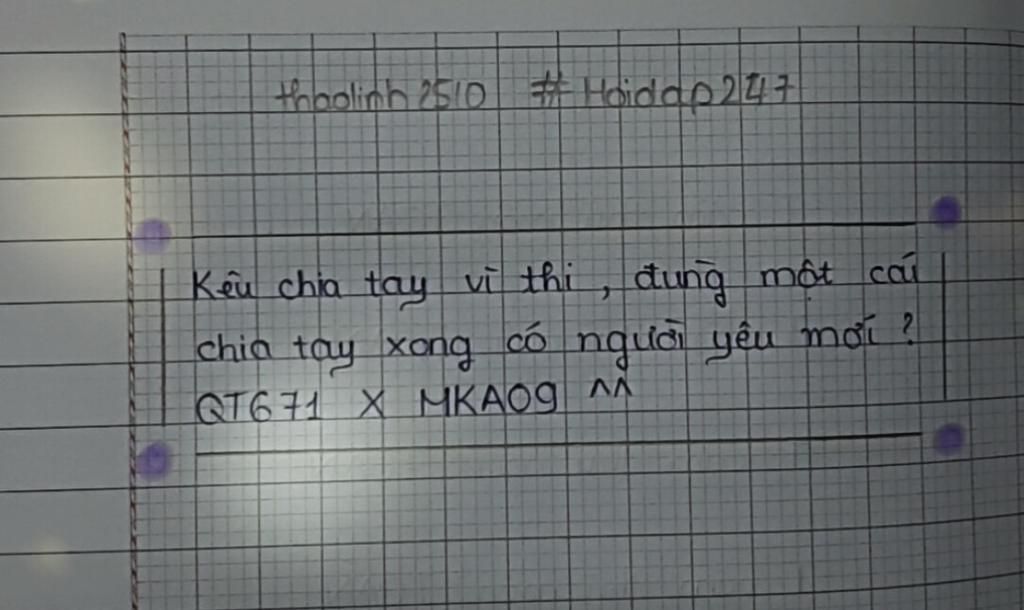 thaolinh2510 # Hoidap247
Kêu chia tay vì thi, đùng một cái
chia tay xong có người yêu mới ?
QT671 X MKA09 ^^